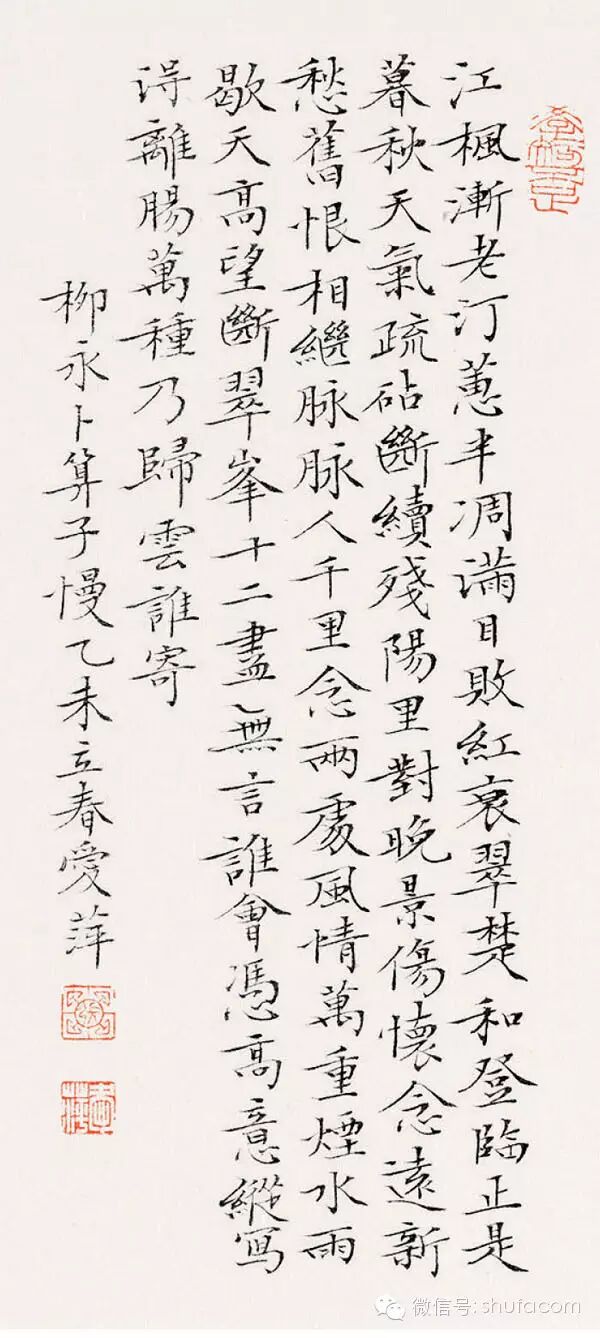 江楓漸老汀蕙半凋滿目敗紅衰翠楚和登臨正是
暮秋天氣疏砧斷續殘陽里對晚景傷懷念遠新
愁舊恨相繼脉脉人千里念兩處風情萬重煙水雨
歇天高望斷翠峯十二盡無言誰會慿高意縱寫
得離腸萬種乃歸雲誰寄
柳永卜算子慢乙未立春愛萍
微信号: shufacom